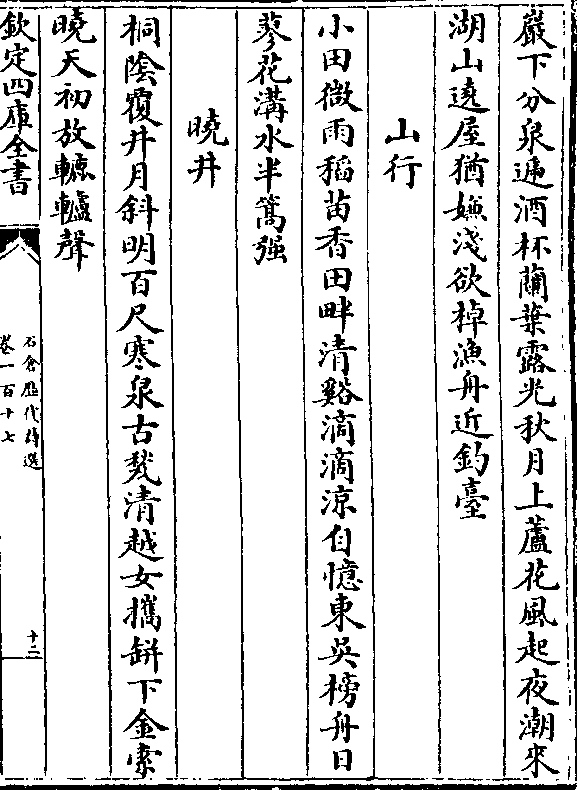 巖下分泉遞酒杯蘭葉露光秋月上蘆花風起夜潮來
湖山遶屋猶嫌淺欲棹漁舟近釣臺
山行
小田微雨稻苗香田畔清谿滴滴涼自憶東吳榜舟日
蓼花溝水半篙强
曉井
桐陰覆井月斜明百尺寒泉古甃清越女攜缾下金索
曉天初放轆轤聲
欽定四庫全書
石倉歷代詩選
卷一百十七
十二